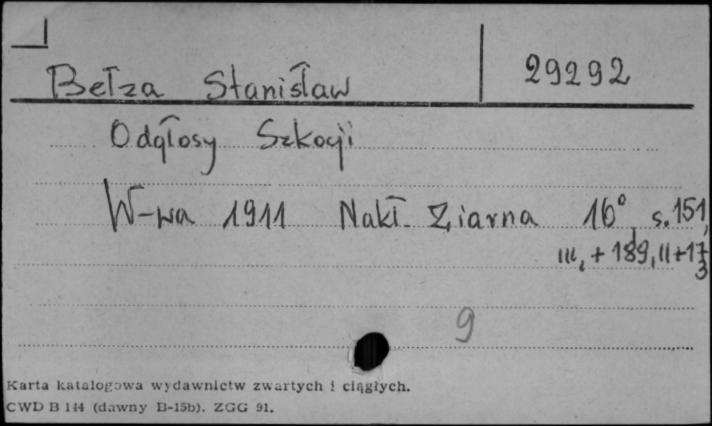 Bełza Stanisław 29292
Odgłosy Szkocji
W-wa 1911 Nakł. Ziarna 16° s. 151,
III, + 189, II + 173
9
Karta katalogowa wydawnictw zwartych i ciągłych.
CWD B 144 (dawny B-15b). ZGG 91.